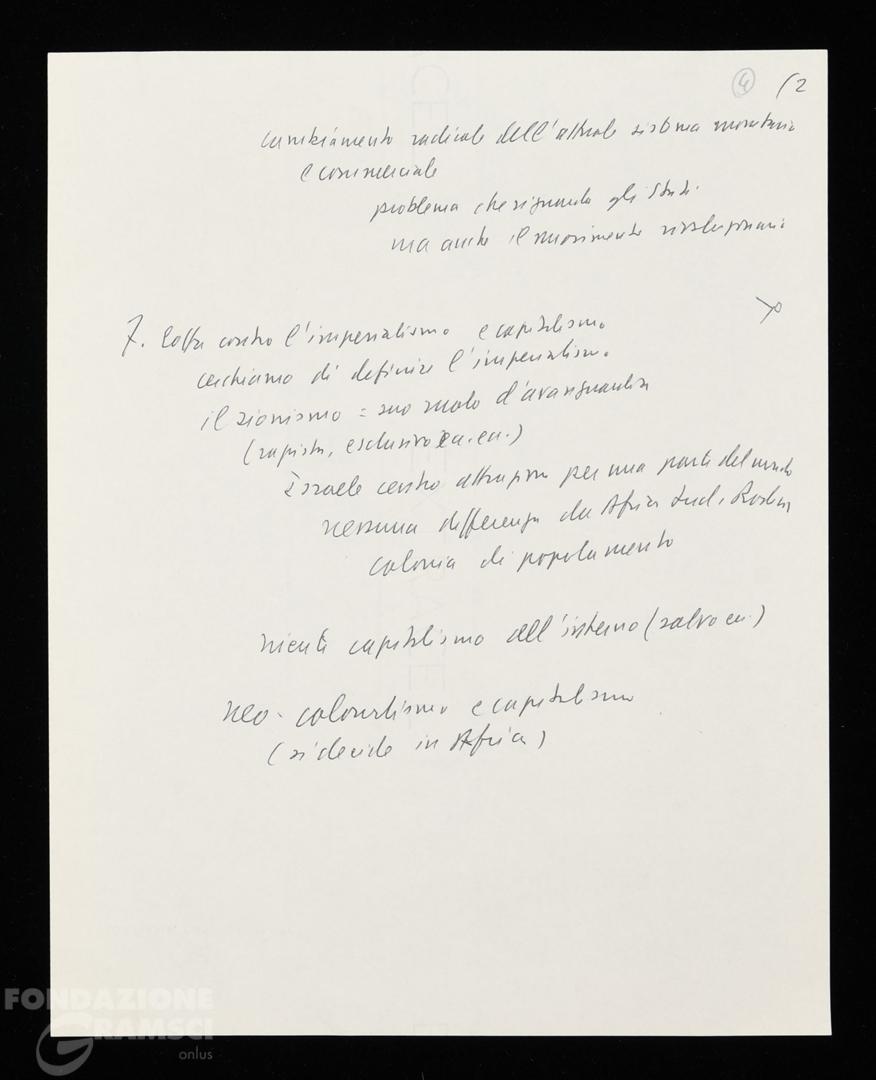 4 /2
cambiamento radicale dell'attuale sistema monetario
e commerciale
problema che riguarda gli Stati
ma anche il movimento rivoluzionario
7. Lotta contro l'imperialismo e capitalismo
cerchiamo di definire l'imperialismo
il sionismo = suo ruolo d'avanguardia
(razzista, esclusivo
Israele centro attrazione per una parte del mondo
nessuna differenza da Africa Sud,
colonia di popolamento
niente capitalismo all'interno (salvo
neo-colonialismo e capitalismo
(si decide in Africa)
FONDAZIONE
GRAMSCI
onlus